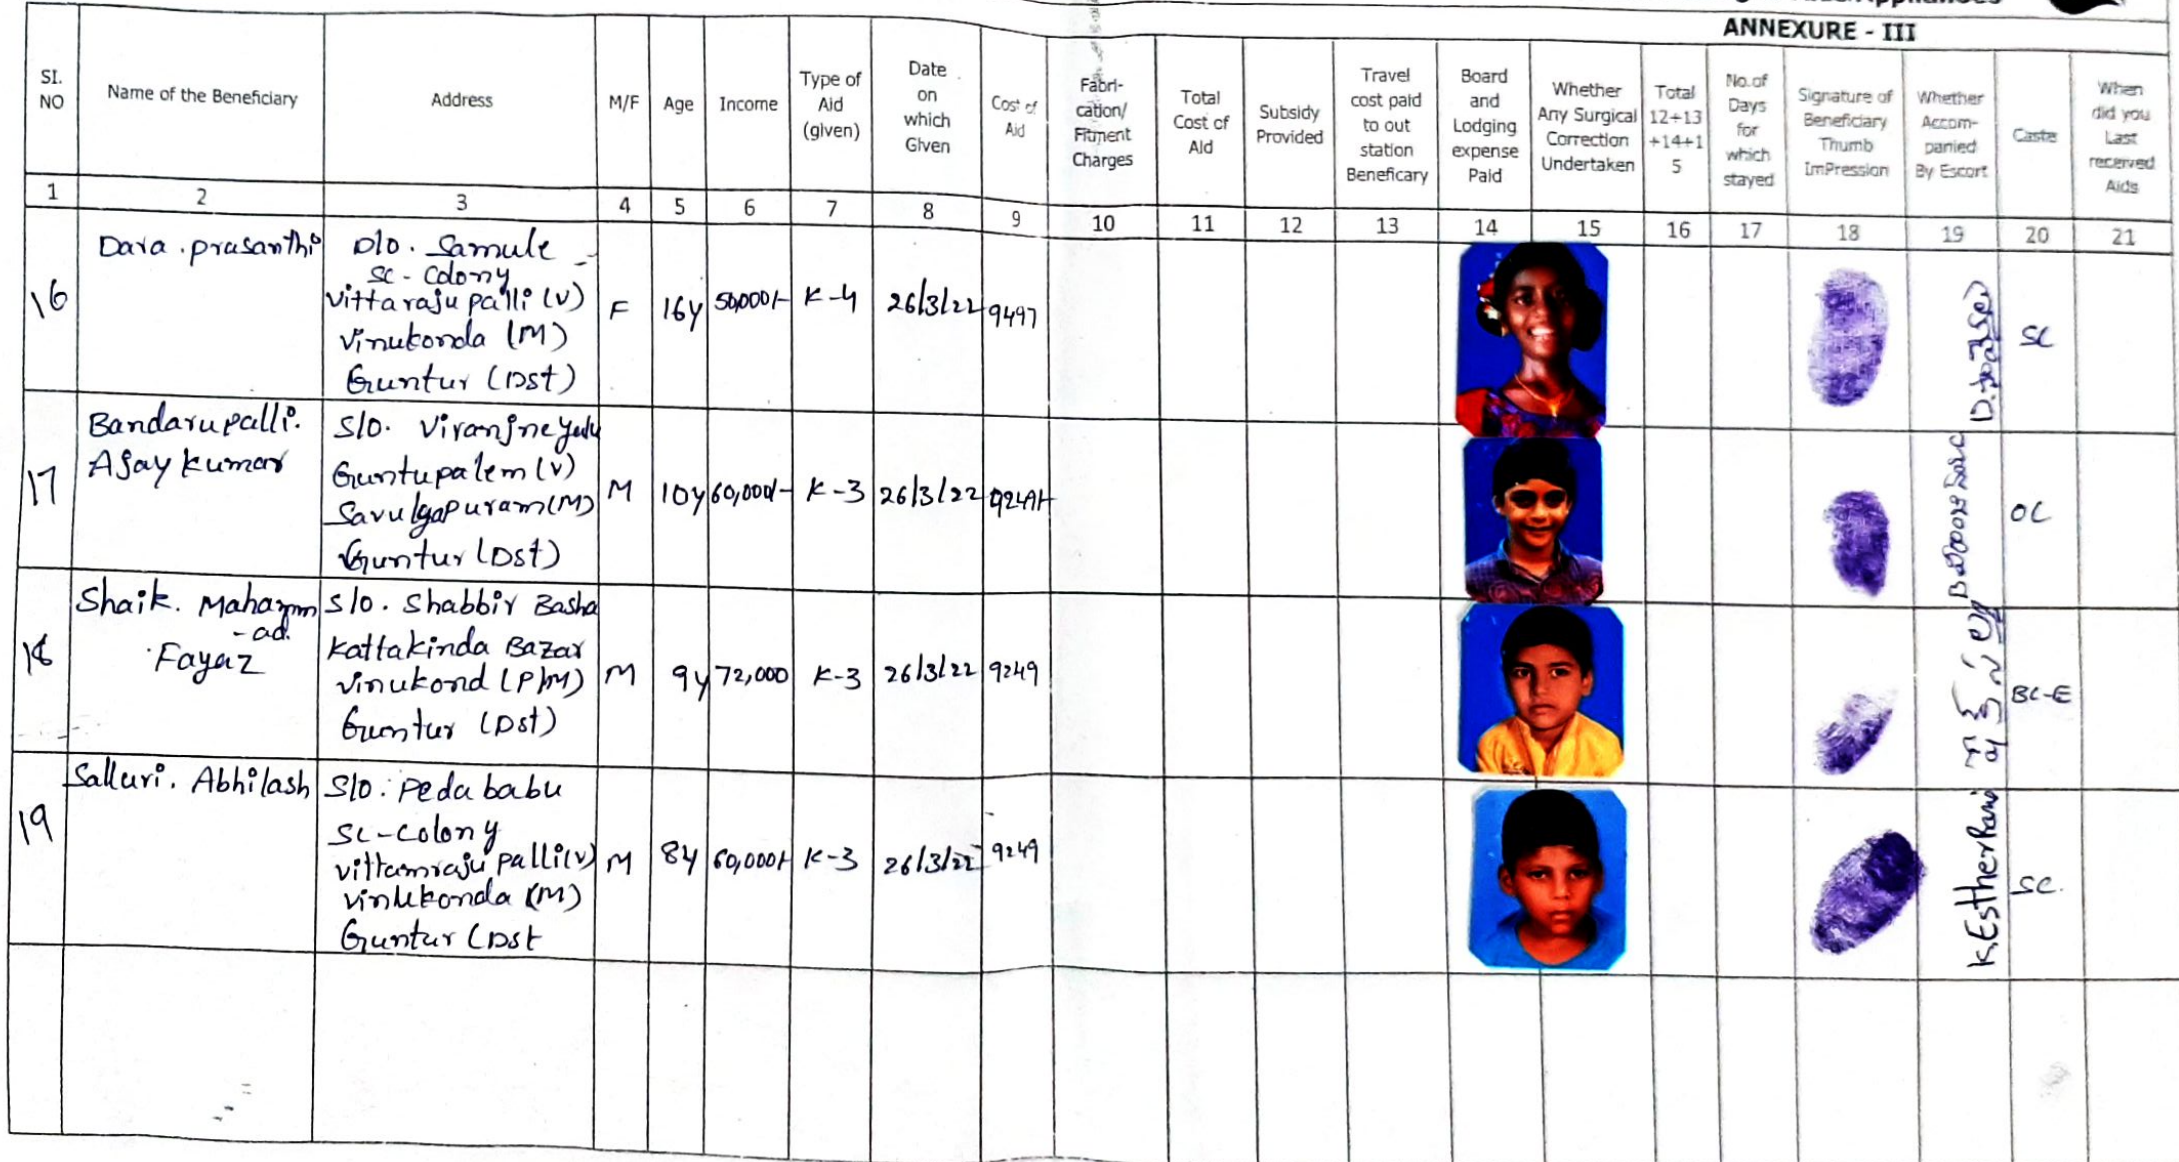 ANNEXURE - III
SI. NO
Name of the Beneficiary
Address
M/F
Age
Income
Type of Aid (given)
Date on which Given
Cost of Aid
Fabri-cation/ Fitment Charges
Total Cost of Aid
Subsidy Provided
Travel cost paid to out station Beneficary
Board and Lodging expense Paid
Whether Any Surgical Correction Undertaken
Total 12+13 +14+1 5
No.of Days for which stayed
Signature of Beneficiary Thumb ImPression
Whether Accom-panied By Escort
Caste
When did you Last received Aids
1 2 3 4 5 6 7 8 9 10 11 12 13 14 15 16 17 18 19 20 21
16
Dara . prasanthi
D/o. Samule
SC - Colony
Vittaraju palli (V)
Vinukonda (M)
Guntur (Dst)
F
16y
50,000/-
K-4
26/3/22
9497
SC
17
Bandarupalli.
Ajay kumar
S/o. Viranjneyulu
Guntupalem (V)
Savulyapuram (M)
Guntur (Dst)
M
10y
60,000/-
K-3
26/3/22
9249/-
OC
18
Shaik. Mahamm
-ad.
Fayaz
S/o. Shabbir Basha
Kattakinda Bazar
Vinukond (P/M)
Guntur (Dst)
M
9y
72,000
K-3
26/3/22
9249
BC-E
19
Salluri. Abhilash
S/o: Peda babu
SC-Colony
Vittamraju palli (V)
Vinukonda (M)
Guntur (Dst
M
8y
60,000/-
K-3
26/3/22
9249
K. Esther Rani
SC.